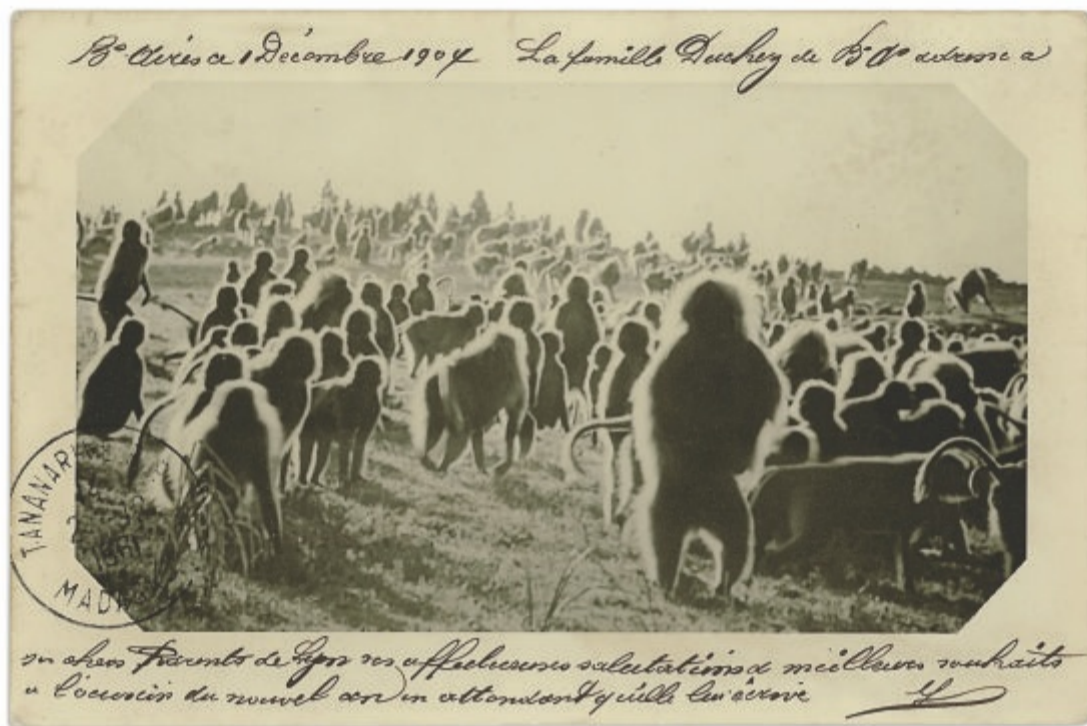 Bs Aires ce 1 Décembre 1904 La famille Duchez de Bs As adresse a
TANANARI
MADA
ses chers Parents de Lyon ses affectueuses salutations & meilleurs souhaits
a l'occasion du nouvel an en attendant qu'elle lui écrive